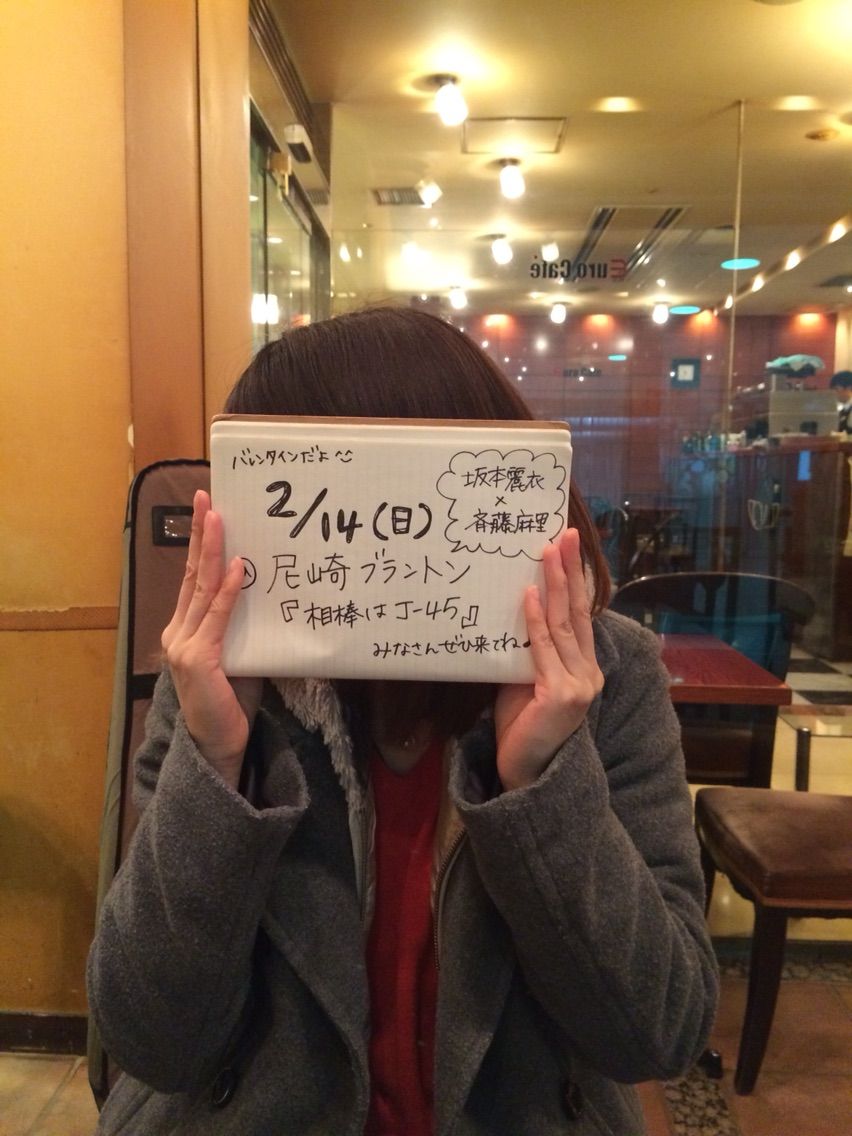 バレンタインだよ^^
2/14(日)
坂本麗衣
×
斉藤麻里
尼崎ブラントン
『相棒はJ-45』
みなさんぜひ来てね♪
Euro Café